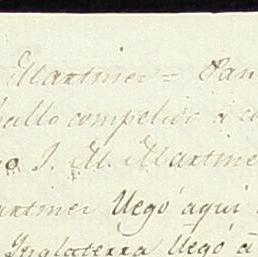 Martinez = San
ballo compelido á co
o J. M. Martine
artinez llegó aquí
Inglaterra llegó á